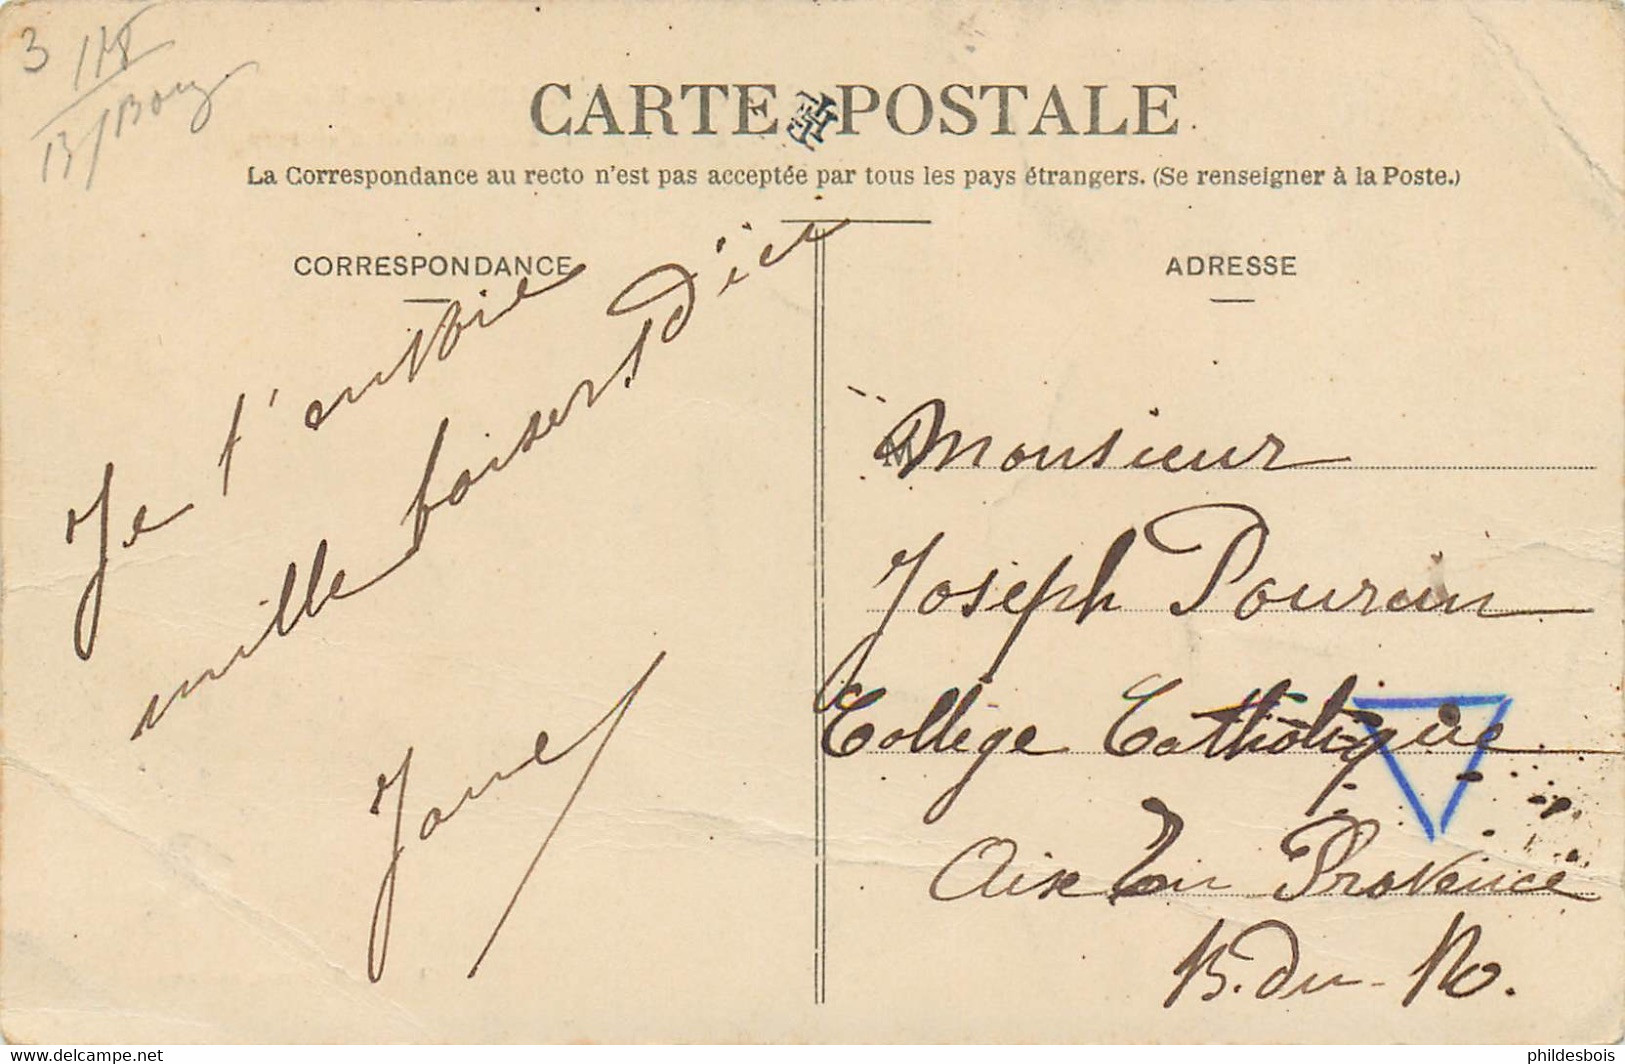 3 118
13/Bouy
CARTE POSTALE
La Correspondance au recto n'est pas acceptée par tous les pays étrangers. (Se renseigner à la Poste.)
CORRESPONDANCE
Je t'envoie
mille baisers d'ici
Jane
ADRESSE
M Monsieur
Joseph Pourcin
Collège Catholique
Aix En Provence
B. du-Ro.
www.delcampe.net
phildesbois